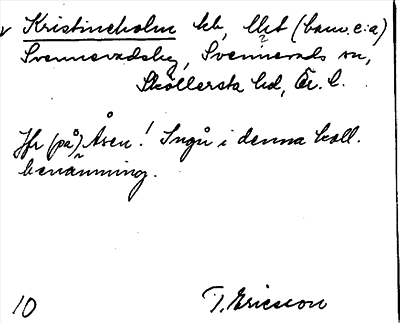 v Kristineholm lht, llht (bam. e: a)
Svennevadsby, Svennevads sn,
Sköllersta hd, Ör. l.
Jfr (på) Åsen! Ingå i denna koll.
benämning.
10 T. Ericsson